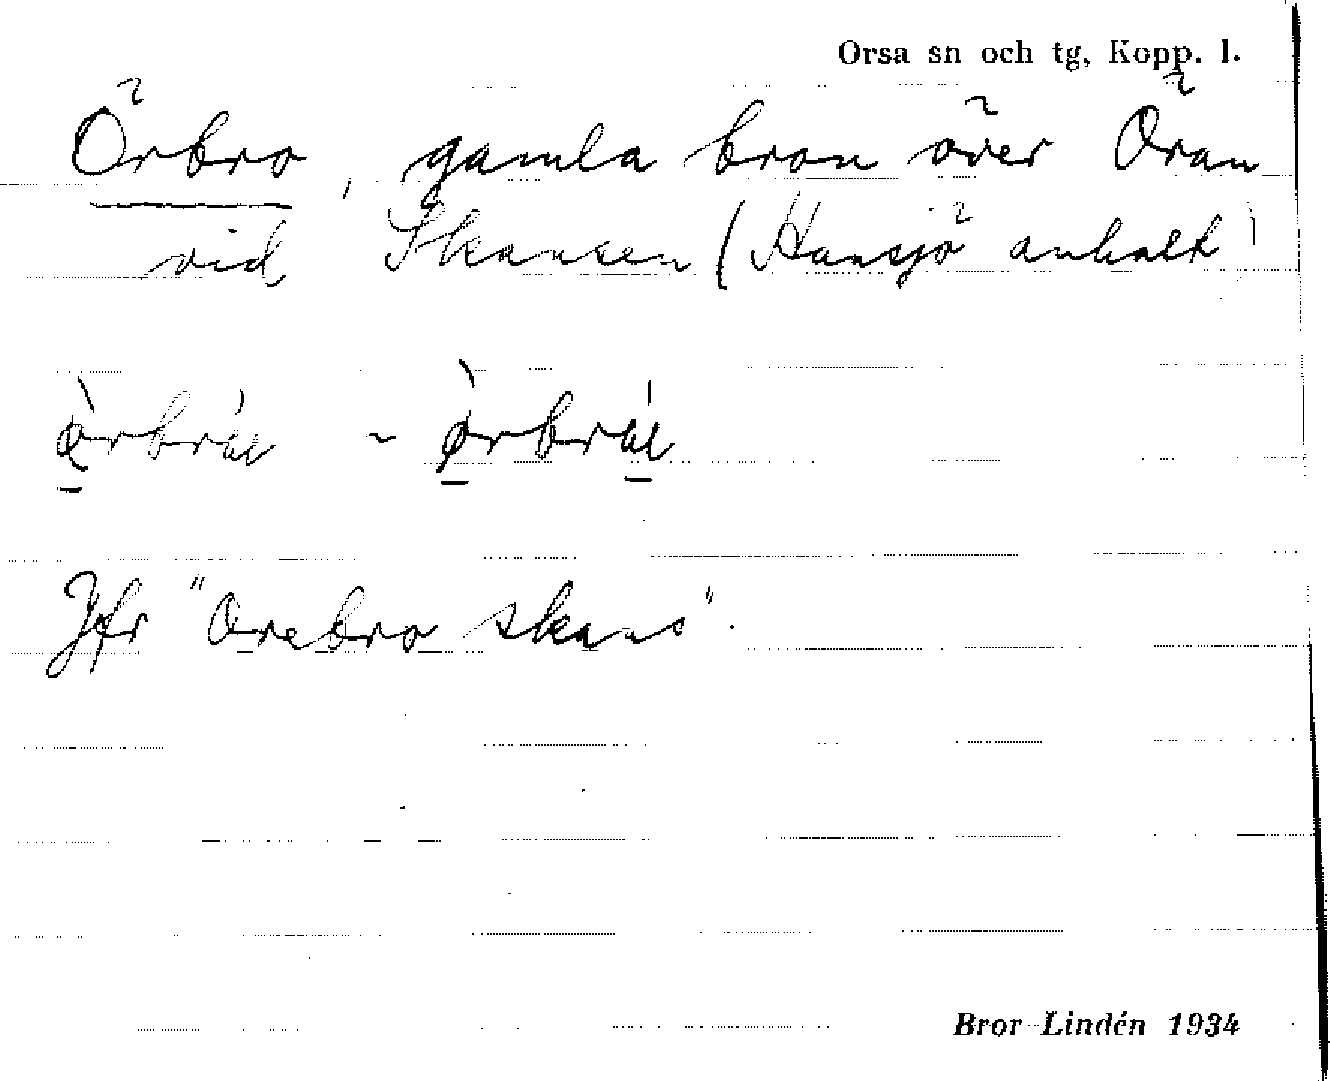 Orsa sn och tg, Kopp. l.
Örbro, gamla bron över Öran
vid Skansen (Hansjö anhalt)
Jfr "Orebro skans".
Bror Lindén 1934